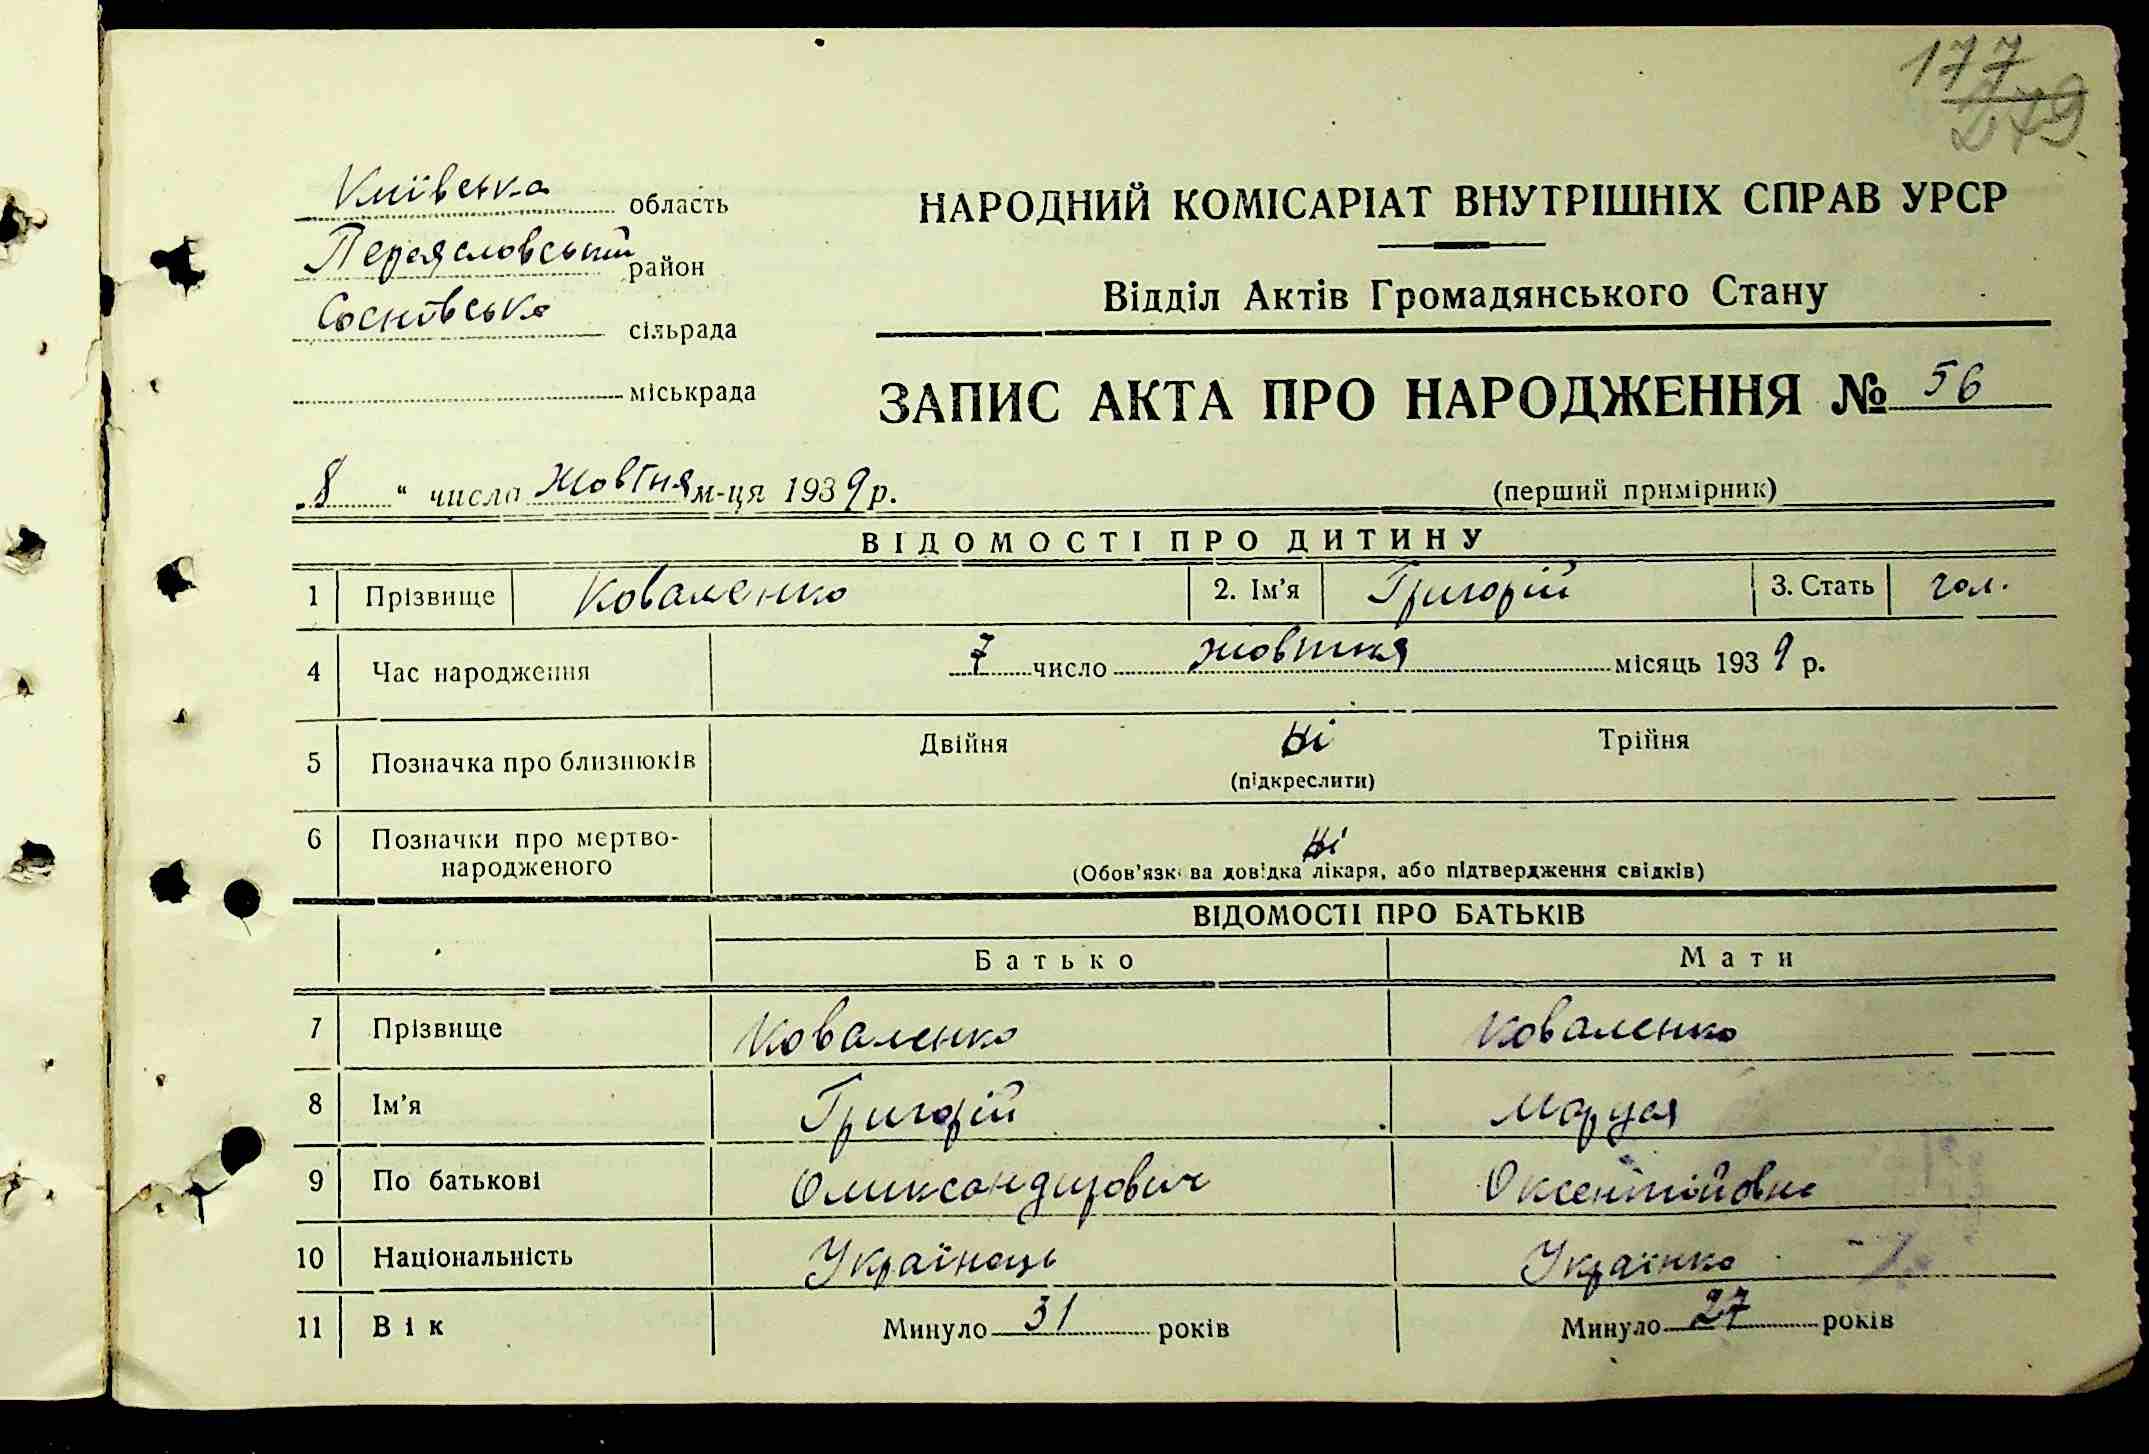 177
279
Київська область
Переясловський район
Сосновська сільрада
міськрада
НАРОДНИЙ КОМІСАРІАТ ВНУТРІШНІХ СПРАВ УРСР
Відділ Актів Громадянського Стану
ЗАПИС АКТА ПРО НАРОДЖЕННЯ № 56
8 " число жовтня м-ця 1939 р.
(перший примірник)
ВІДОМОСТІ ПРО ДИТИНУ
1 Прізвище Коваленко 2. Ім'я Григорій 3. Стать чол.
4 Час народження 7 число жовтня місяць 1939 р.
5 Позначка про близнюків Двійня ні Трійня
(підкреслити)
6 Позначки про мертво-
народженого ні
(Обов'язкова довідка лікаря, або підтвердження свідків)
ВІДОМОСТІ ПРО БАТЬКІВ
Батько Мати
7 Прізвище Коваленко Коваленко
8 Ім'я Григорій Маруся
9 По батькові Олександрович Оксентійовна
10 Національність Українець Українка
11 Вік Минуло 31 років Минуло 27 років